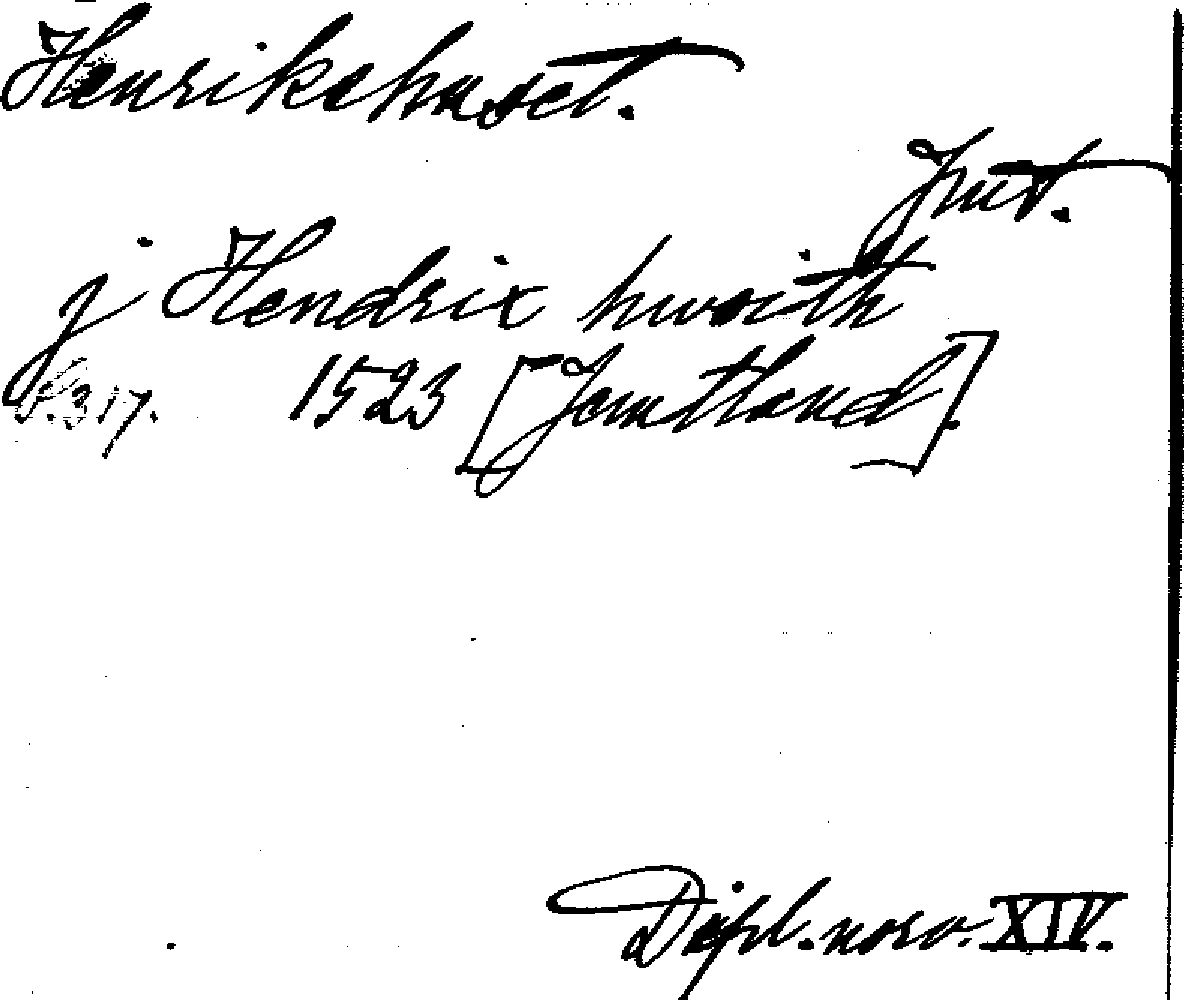 Henrikshuset.
Jmt.
j Hendrix hwsith
S. 317. 1523 [Jemtland].
Dipl. norv. XIV.